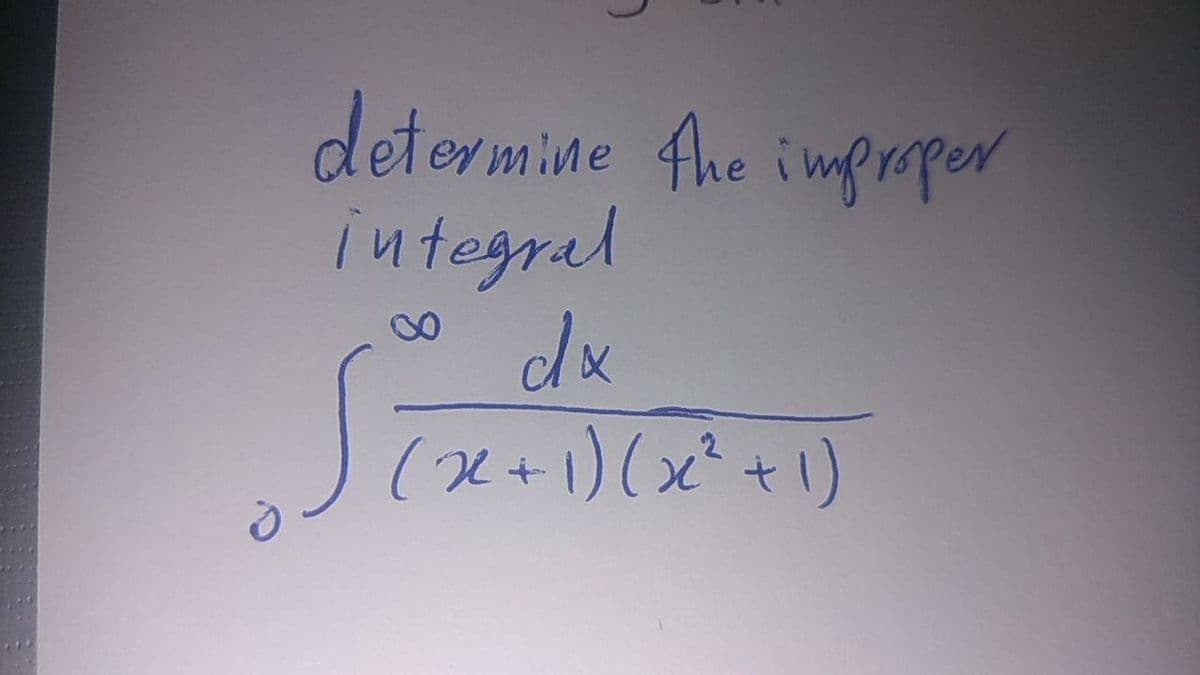 determine the improper
integral
∫₀^∞ dx / (x+1)(x²+1)